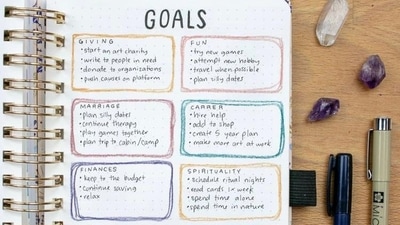 GOALS
GIVING
• start an art charity
• write to people in need
• donate to organizations
• push causes on platform
FUN
• try new games
• attempt new hobby
• travel when possible
• plan silly dates
MARRIAGE
• plan silly dates
• continue therapy
• play games together
• plan trip to cabin/camp
CAREER
• hire help
• add to shop
• create 5 year plan
• make more art at work
FINANCES
• keep to the budget
• continue saving
• relax
SPIRITUALITY
• schedule ritual nights
• read cards 1x week
• spend time alone
• spend time in nature